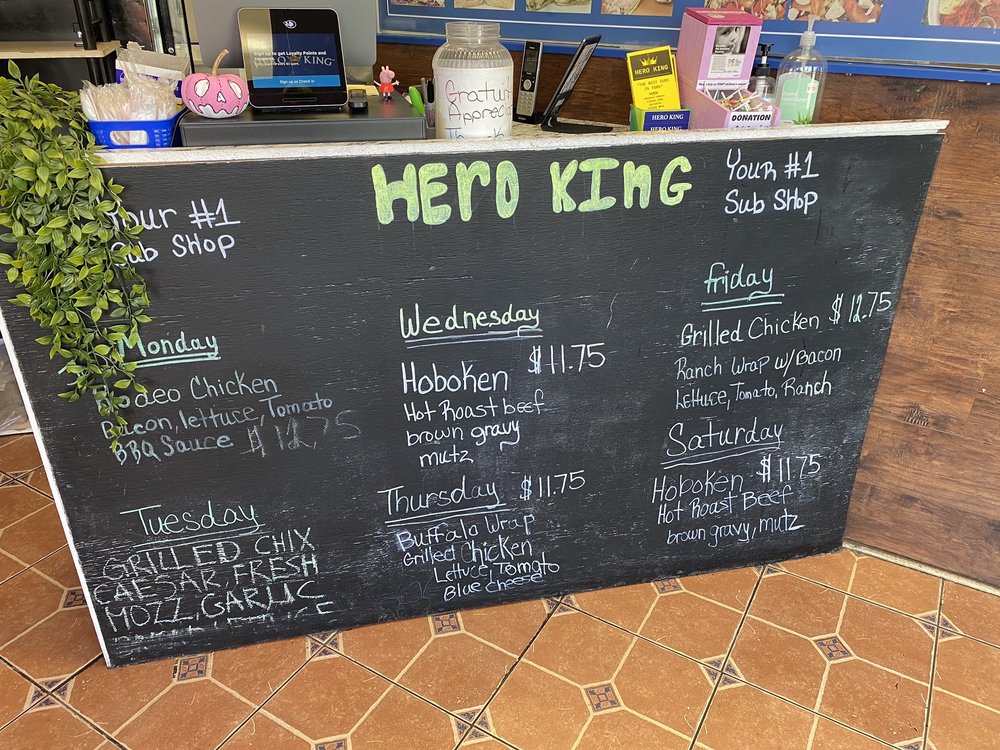 Sign up to get Loyalty Points and
KING
Sign up or Check in
HERO KING
"THE BEST SUBS
IN TOWN"
HERO KING
DONATION
HERO KING
Your #1
Sub Shop
Your #1
Sub Shop
Monday
Chicken
Bacon, lettuce, Tomato
BBQ Sauce $12.75
Tuesday
GRILLED CHIX
CAESAR, FRESH
MOZZ, GARLIC
Wednesday
$11.75
Hoboken
Hot Roast beef
brown gravy
mutz
Thursday $11.75
Buffalo Wrap
Grilled Chicken
Lettuce, Tomato
Blue cheese
friday
Grilled Chicken $12.75
Ranch Wrap w/Bacon
Lettuce, Tomato, Ranch
Saturday
Hoboken $11.75
Hot Roast Beef
brown gravy, mutz